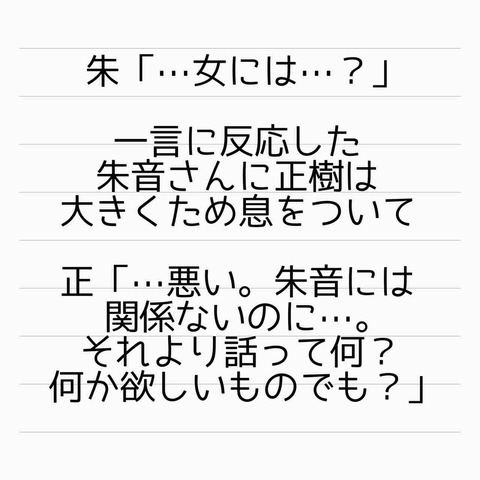 朱「…女には…？」
一言に反応した
朱音さんに正樹は
大きくため息をついて
正「…悪い。朱音には
関係ないのに…。
それより話って何？
何か欲しいものでも？」